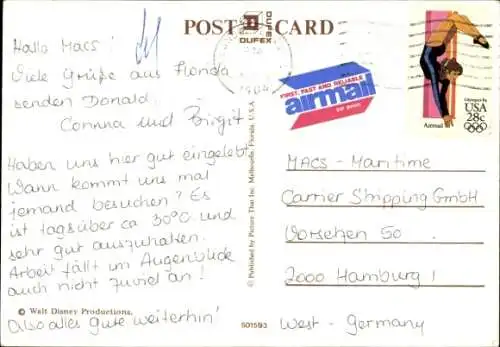 POST CARD
DUFEX
DUFEX
1984
Hallo Macs!
Viele Grüße aus Florida
senden Donald,
Corinna und Birgit
Haben uns hier gut eingelebt.
Wann kommt uns mal
jemand besuchen? Es
ist tagsüber ca 30°C und
sehr gut auszuhalten.
Arbeit fällt im Augenblick
auch nicht zuviel an!
© Walt Disney Productions.
Also alles gute weiterhin!
© Published by Picture That Inc. Melbourne, Florida. U.S.A.
501593
FIRST, FAST AND RELIABLE
airmail
Olympics 84
USA
28c
Airmail
MACS - Maritime
Carrier Shipping GmbH
Vorsetzen 50
2000 Hamburg 1
West - Germany